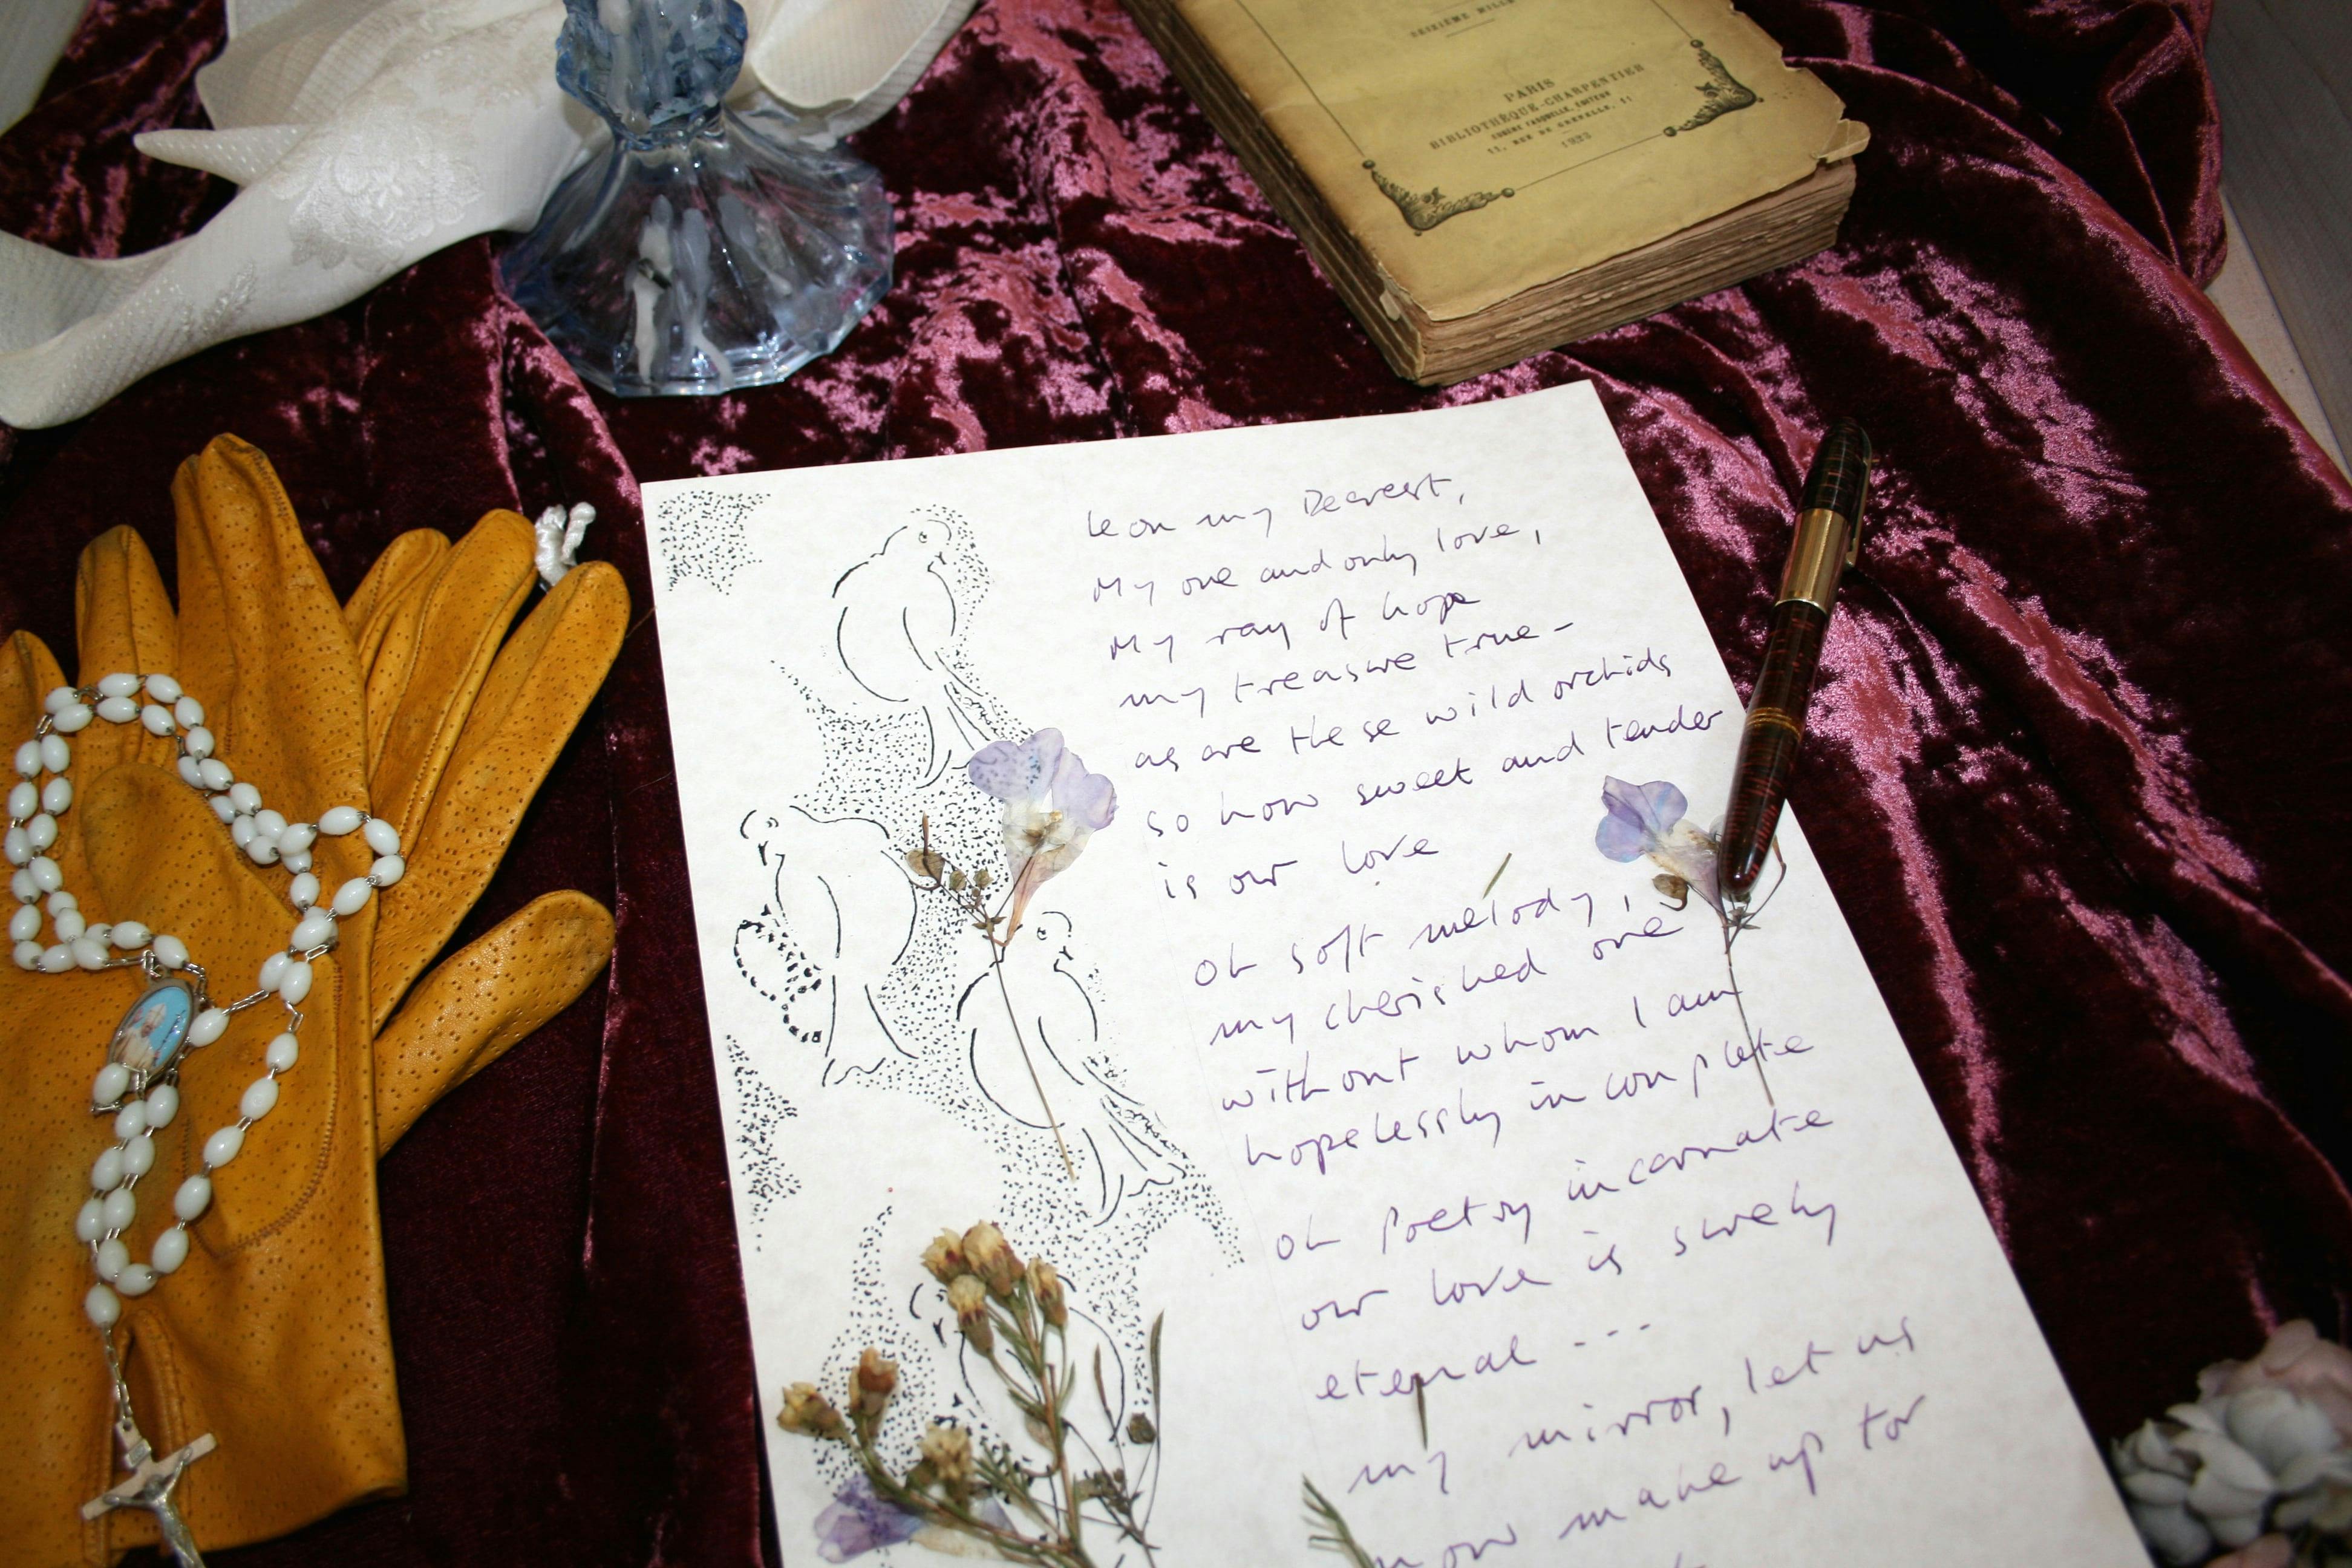 SEIZIÈME MILLE
PARIS
BIBLIOTHÈQUE-CHARPENTIER
EUGÈNE FASQUELLE, ÉDITEUR
11, RUE DE GRENELLE, 11
1923
Leon my Dearest,
My one and only love,
My ray of hope
my treasure true -
as are these wild orchids
so how sweet and tender
is our love
Oh soft melody,
my cherished one
without whom I am
hopelessly incomplete
Oh Poetry incarnate
our love is surely
eternal ---
my mirror, let us
now make up for